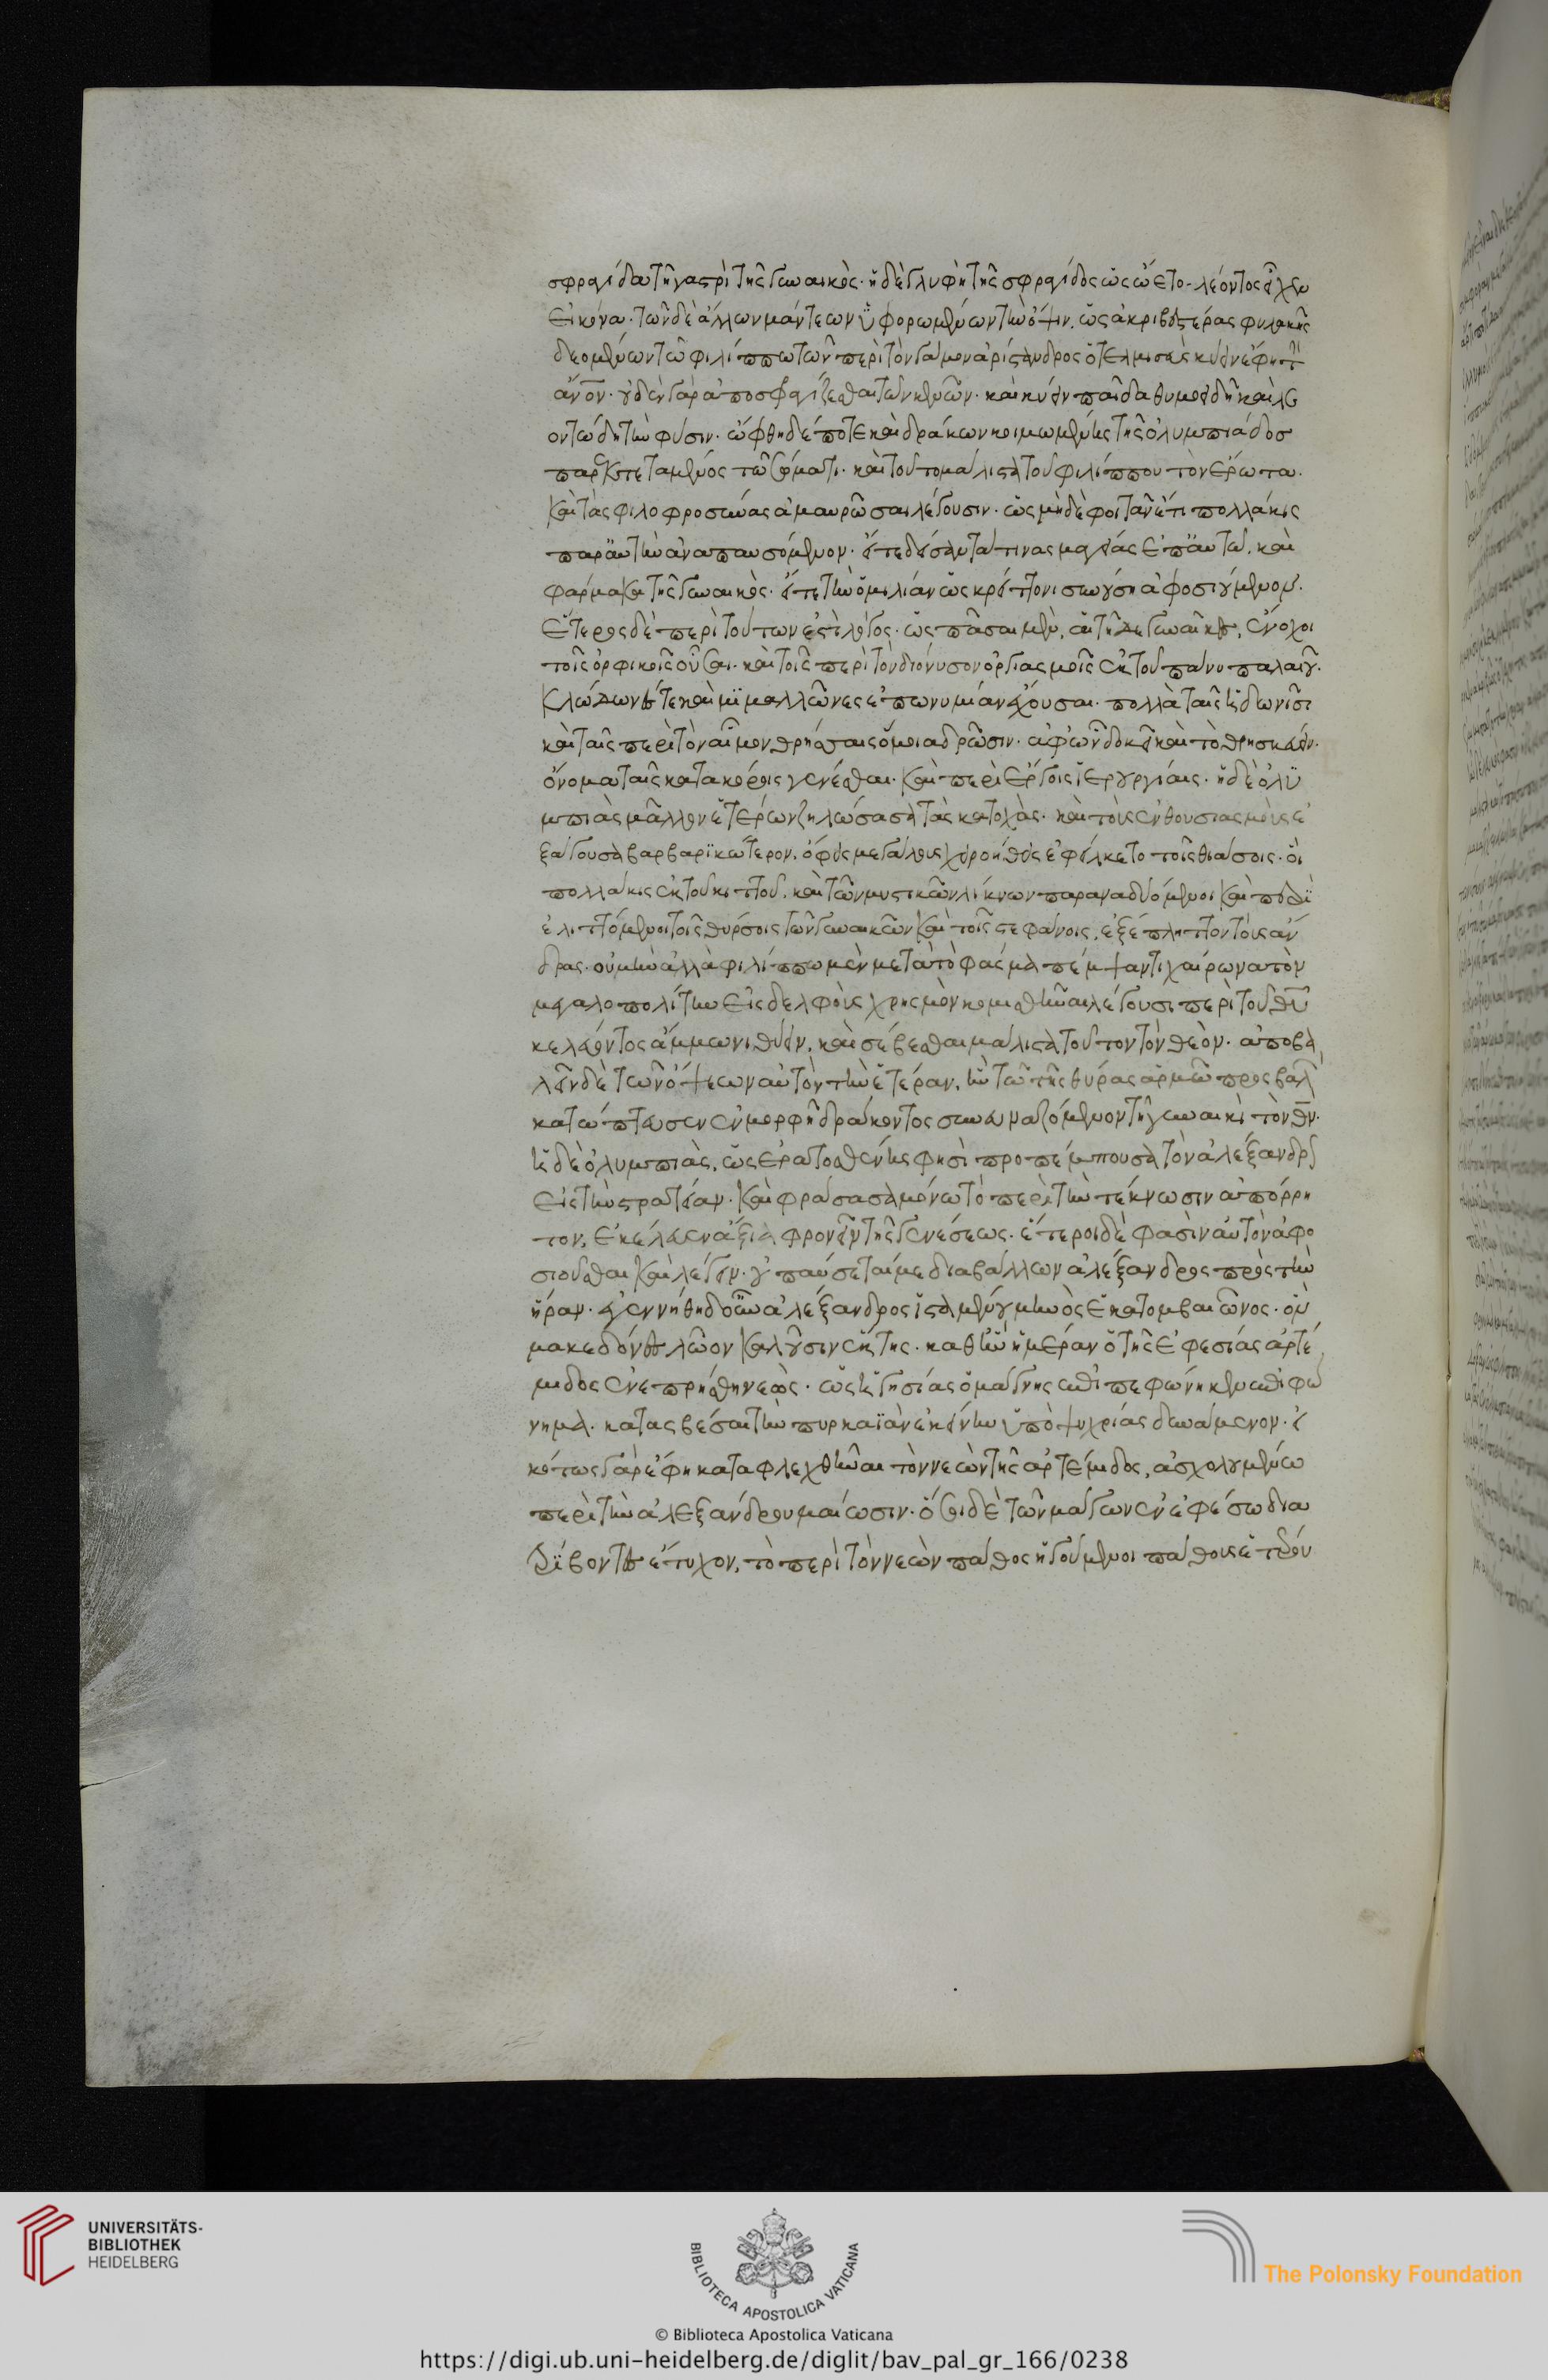 σφραγίδα τῆ γαστρὶ τῆς γυναικὸς· ἡ δὲ γλυφὴ τῆς σφραγίδος ὡς ὤετο· λέοντος εἶχεν
εἰκόνα· τῶν δὲ ἄλλων μάντεων ὑφορωμένων τὴν ὄψιν, ὡς ἀκριβεστέρας φυλακῆς
δεομένων τῶ φιλίππω τῶν περὶ τὸν γάμον ἀρίστανδρος ὁ τελμισεὺς κύειν ἔφη τὴν
ἄνον· οὐδὲν γὰρ ἀποσφραγίζεσθαι τῶν κενῶν· καὶ κύειν παῖδα θυμοειδῆ καὶ λε
οντώδη τὴν φύσιν· ὤφθη δέ ποτε καὶ δράκων κοιμωμένης τῆς ὀλυμπιάδοσ
παρεκτεταμένος τῶ σώματι· καὶ τοῦτο μάλιστα τοῦ φιλίππου τὸν ἔρωτα·
καὶ τὰς φιλοφροσύνας ἀμαυρῶσαι λέγουσιν· ὡς μηδὲ φοιτᾶν ἔτι πολλάκις
παρ' αὐτὴν ἀναπαυσόμενον· εἴτε δείσαντά τινας μαγείας ἐπ' αὐτῶ, καὶ
φάρμακα τῆς γυναικὸς· εἴτε τὴν ὁμιλίαν ὡς κρείττονι συνούση ἀφοσιούμενον·
ἕτερος δὲ περὶ τούτων ἐστὶ λόγος· ὡς πᾶσαι μὲν, αἱ τῆδε γυναῖκες, ἔνοχοι
τοῖς ὀρφικοῖς οὖσαι· καὶ τοῖς περὶ τὸν διόνυσον ὀργιασμοῖς ἐκ τοῦ πάνυ παλαιοῦ·
κλώδωνές τε καὶ μιμαλλῶνες ἐπωνυμίαν ἔχουσαι· πολλὰ ταῖς ἠδωνῖσι
καὶ ταῖς περὶ τὸν αἷμον θρήσσαις ὅμοια δρῶσιν· ἀφ' ὧν δοκεῖ καὶ τὸ θρησκεύειν·
ὄνομα ταῖς κατακόροις γενέσθαι· καὶ περιέργοις ἱερουργίαις· ἡ δὲ ὀλυ
μπιὰς μᾶλλον ἑτέρων ζηλώσασα τὰς κατοχὰς· καὶ τοὺς ἐνθουσιασμοὺς ἐ
ξάγουσα βαρβαρικώτερον, ὄφεις μεγάλους χειροήθεις ἐφείλκετο τοῖς θιάσοις· οἳ
πολλάκις ἐκ τοῦ κιττοῦ, καὶ τῶν μυστικῶν λίκνων παραναδυόμενοι καὶ περι
ελιττόμενοι τοῖς θύρσοις τῶν γυναικῶν καὶ τοῖς στεφάνοις, ἐξέπληττον τοὺς ἄν
δρας· οὐ μὴν ἀλλὰ φιλίππω μὲν μετὰ τὸ φάσμα πέμψαντι χαίρωνα τὸν
μεγαλοπολίτην εἰς δελφοὺς χρησμὸν κομισθῆναι λέγουσι περὶ τοῦ θυ
κελεύοντος ἄμμωνι θύειν, καὶ σέβεσθαι μάλιστα τοῦτον τὸν θεὸν· ἀποβα
λεῖν δὲ τῶν ὄψεων αὐτὸν τὴν ἑτέραν, ἣν τῶ τῆς θύρας ἁρμῶ προσβαλὼν
κατώπτευσεν ἐν μορφῆ δράκοντος συνευναζόμενον τῆ γυναικὶ τὸν θν·
ἡ δὲ ὀλυμπιὰς, ὡς ἐρατοσθένης φησὶ προπέμπουσα τὸν ἀλέξανδρον
εἰς τὴν στρατείαν· καὶ φράσασα μόνω τὸ περὶ τὴν τέκνωσιν ἀπόρρη
τον, ἐκέλευεν ἄξια φρονεῖν τῆς γενέσεως· ἕτεροι δὲ φασὶν αὐτὸν ἀφο
σιοῦσθαι καὶ λέγειν· οὐ παύσεταί με διαβάλλων ἀλέξανδρος πρὸς τὴν
ἥραν· ἐγεννήθη δ' οὖν ἀλέξανδρος ἱσταμένου μηνὸς ἑκατομβαιῶνος· ὃν
μακεδόνες λῶον καλοῦσιν ἕκτης· καθ' ἣν ἡμέραν ὁ τῆς ἐφεσίας ἀρτέ
μιδος ἐνεπρήσθη νεὼς· ὡς ἡγησίας ὁ μάγνης ἐπιπεφώνηκεν ἐπιφώ
νημα· κατασβέσαι τὴν πυρκαϊὰν ἐκείνην ὑπὸ ψυχρίας δυνάμενον· εἰ
κότως γὰρ ἔφη καταφλεχθῆναι τὸν νεὼν τῆς ἀρτέμιδος, ἀσχολουμένω
περὶ τὴν ἀλεξάνδρου μαίωσιν· ὅσοι δὲ τῶν μάγων ἐν ἐφέσω δια
τρίβοντες ἔτυχον, τὸ περὶ τὸν νεὼν πάθος ἡγούμενοι πάθους ἑτέρου
UNIVERSITÄTS-
BIBLIOTHEK
HEIDELBERG
BIBLIOTECA APOSTOLICA VATICANA
The Polonsky Foundation
© Biblioteca Apostolica Vaticana
https://digi.ub.uni-heidelberg.de/diglit/bav_pal_gr_166/0238